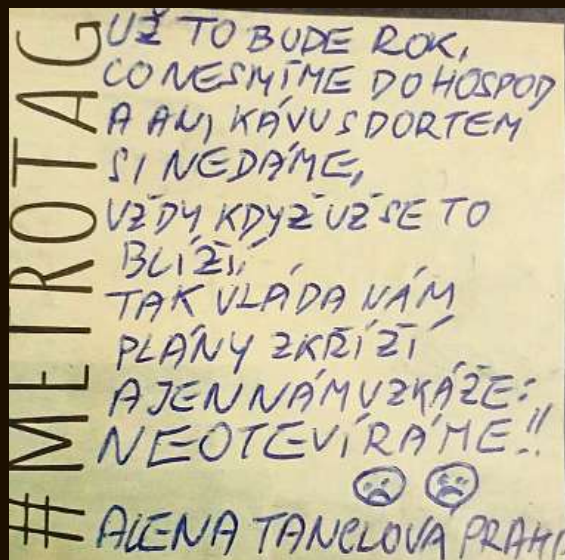 #METROTAG
UŽ TO BUDE ROK,
CO NESMÍME DO HOSPOD
A ANI KÁVU S DORTEM
SI NEDÁME,
VŽDY KDYŽ UŽ SE TO
BLÍŽÍ
TAK VLÁDA NÁM
PLÁNY ZKŘÍŽÍ
A JEN NÁM VZKÁŽE:
NEOTEVÍRÁME!!
ALENA TANCLOVA PRAH